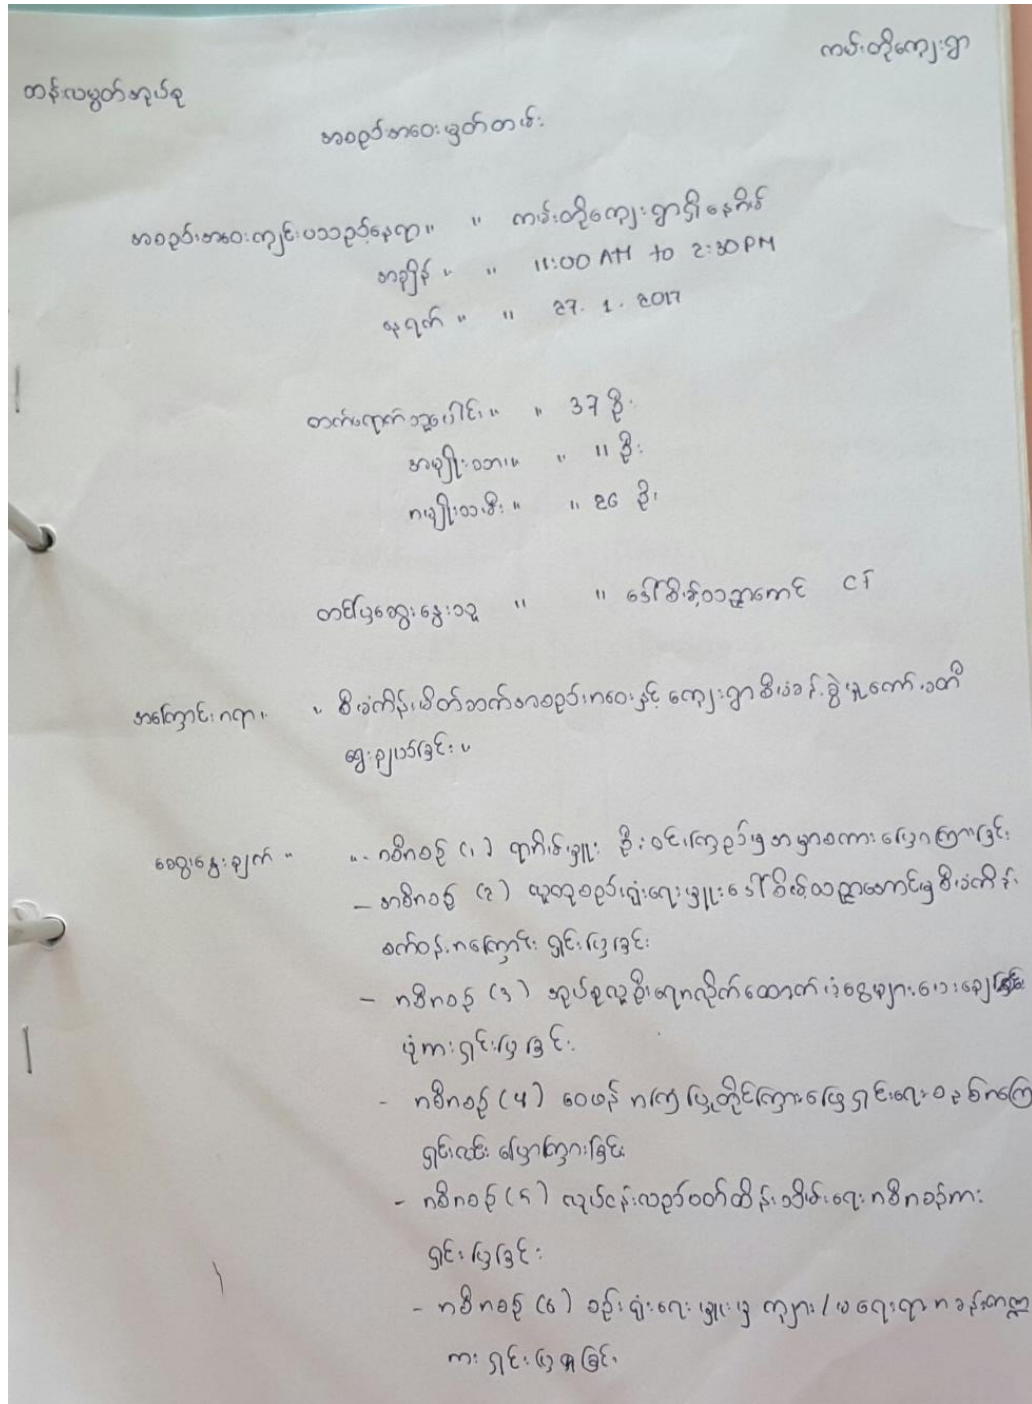 ကမ်းတိုကျေးရွာ
တန်းလမွတ်အုပ်စု
အစည်းအဝေးမှတ်တမ်း
အစည်းအဝေးကျင်းပသည့်နေရာ ။ ။ ကမ်းတိုကျေးရွာရှိနေအိမ်
အချိန် ။ ။ 11:00 AM to 2:30 PM
နေ့ရက် ။ ။ 27. 1. 2017
တက်ရောက်သူပေါင်း ။ ။ 37 ဦး
အမျိုးသား ။ ။ 11 ဦး
အမျိုးသမီး ။ ။ 26 ဦး
တင်ပြဆွေးနွေးသူ ။ ။ ဒေါ်စိမ့်သညာအောင် CF
အကြောင်းအရာ ။ ။ စီမံကိန်းမိတ်ဆက်အစည်းအဝေးနှင့် ကျေးရွာစီမံခန့်ခွဲမှုကော်မတီ
ရွေးချယ်ခြင်း ။
ဆွေးနွေးချက် ။ ။ - အစီအစဉ် (၁) ရာအိမ်မှူး ဦးဝင်းကြည်မှ အမှာစကားပြောကြားခြင်း
- အစီအစဉ် (၂) လူထုစည်းရုံးရေးမှူး ဒေါ်စိမ့်သညာအောင်မှ စီမံကိန်း
စက်ဝန်းအကြောင်း ရှင်းပြခြင်း
- အစီအစဉ် (၃) အုပ်စုလူဦးရေအလိုက်ထောက်ပံ့ငွေများပေးချေခြင်း
ပုံအား ရှင်းပြခြင်း
- အစီအစဉ် (၄) ဝေဖန် အကြံပြု တိုင်ကြားဖြေရှင်းရေး စနစ်အကြော
ရှင်းလင်း ပြောကြားခြင်း
- အစီအစဉ် (၅) လုပ်ငန်းလည်ပတ်ထိန်းသိမ်းရေး အစီအစဉ်အား
ရှင်းပြခြင်း
- အစီအစဉ် (၆) စည်းရုံးရေးမှူးမှ ကျား/မ ရေးရာ အခန်းကဏ္ဍ
အား ရှင်းပြခြင်း